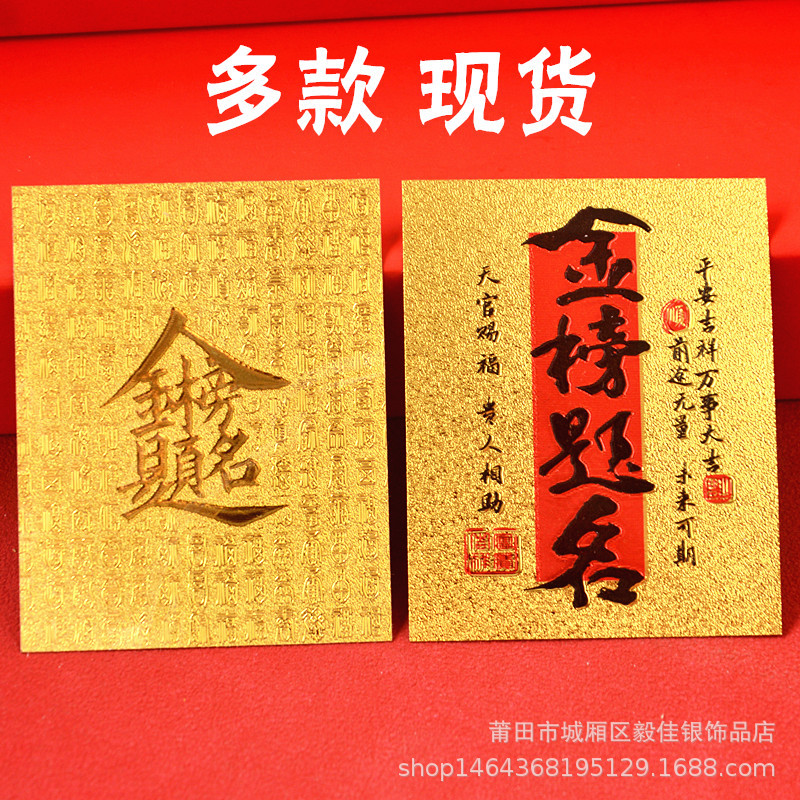 多款 现货
金榜題名
金榜题名
平安吉祥万事大吉
前途无量 未来可期
天官赐福 贵人相助
莆田市城厢区毅佳银饰品店
shop1464368195129.1688.com